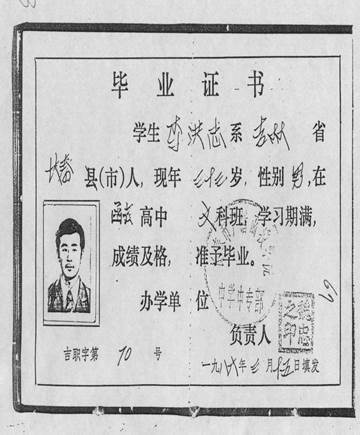 毕业证书
学生 李洪志 系 吉林 省
长春 县(市)人，现年 岁，性别 男，在
函授 高中 文 科班，学习期满，
成绩及格，准予毕业。
办学单位
中学中专部
负责人
之印
吉职字第 70 号
一九八 年 月 日填发